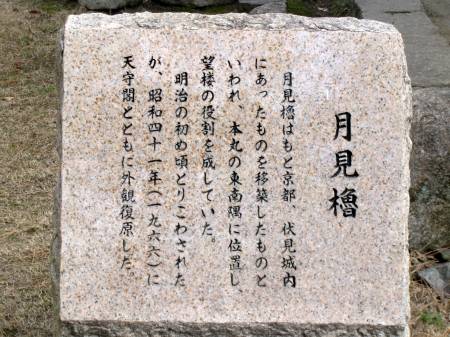 月見櫓
月見櫓はもと京都 伏見城内
にあったものを移築したものと
いわれ、本丸の東南隅に位置し
望楼の役割を成していた。
明治の初め頃とりこわされた
が、昭和四十一年(一九六六)に
天守閣とともに外観復原した。